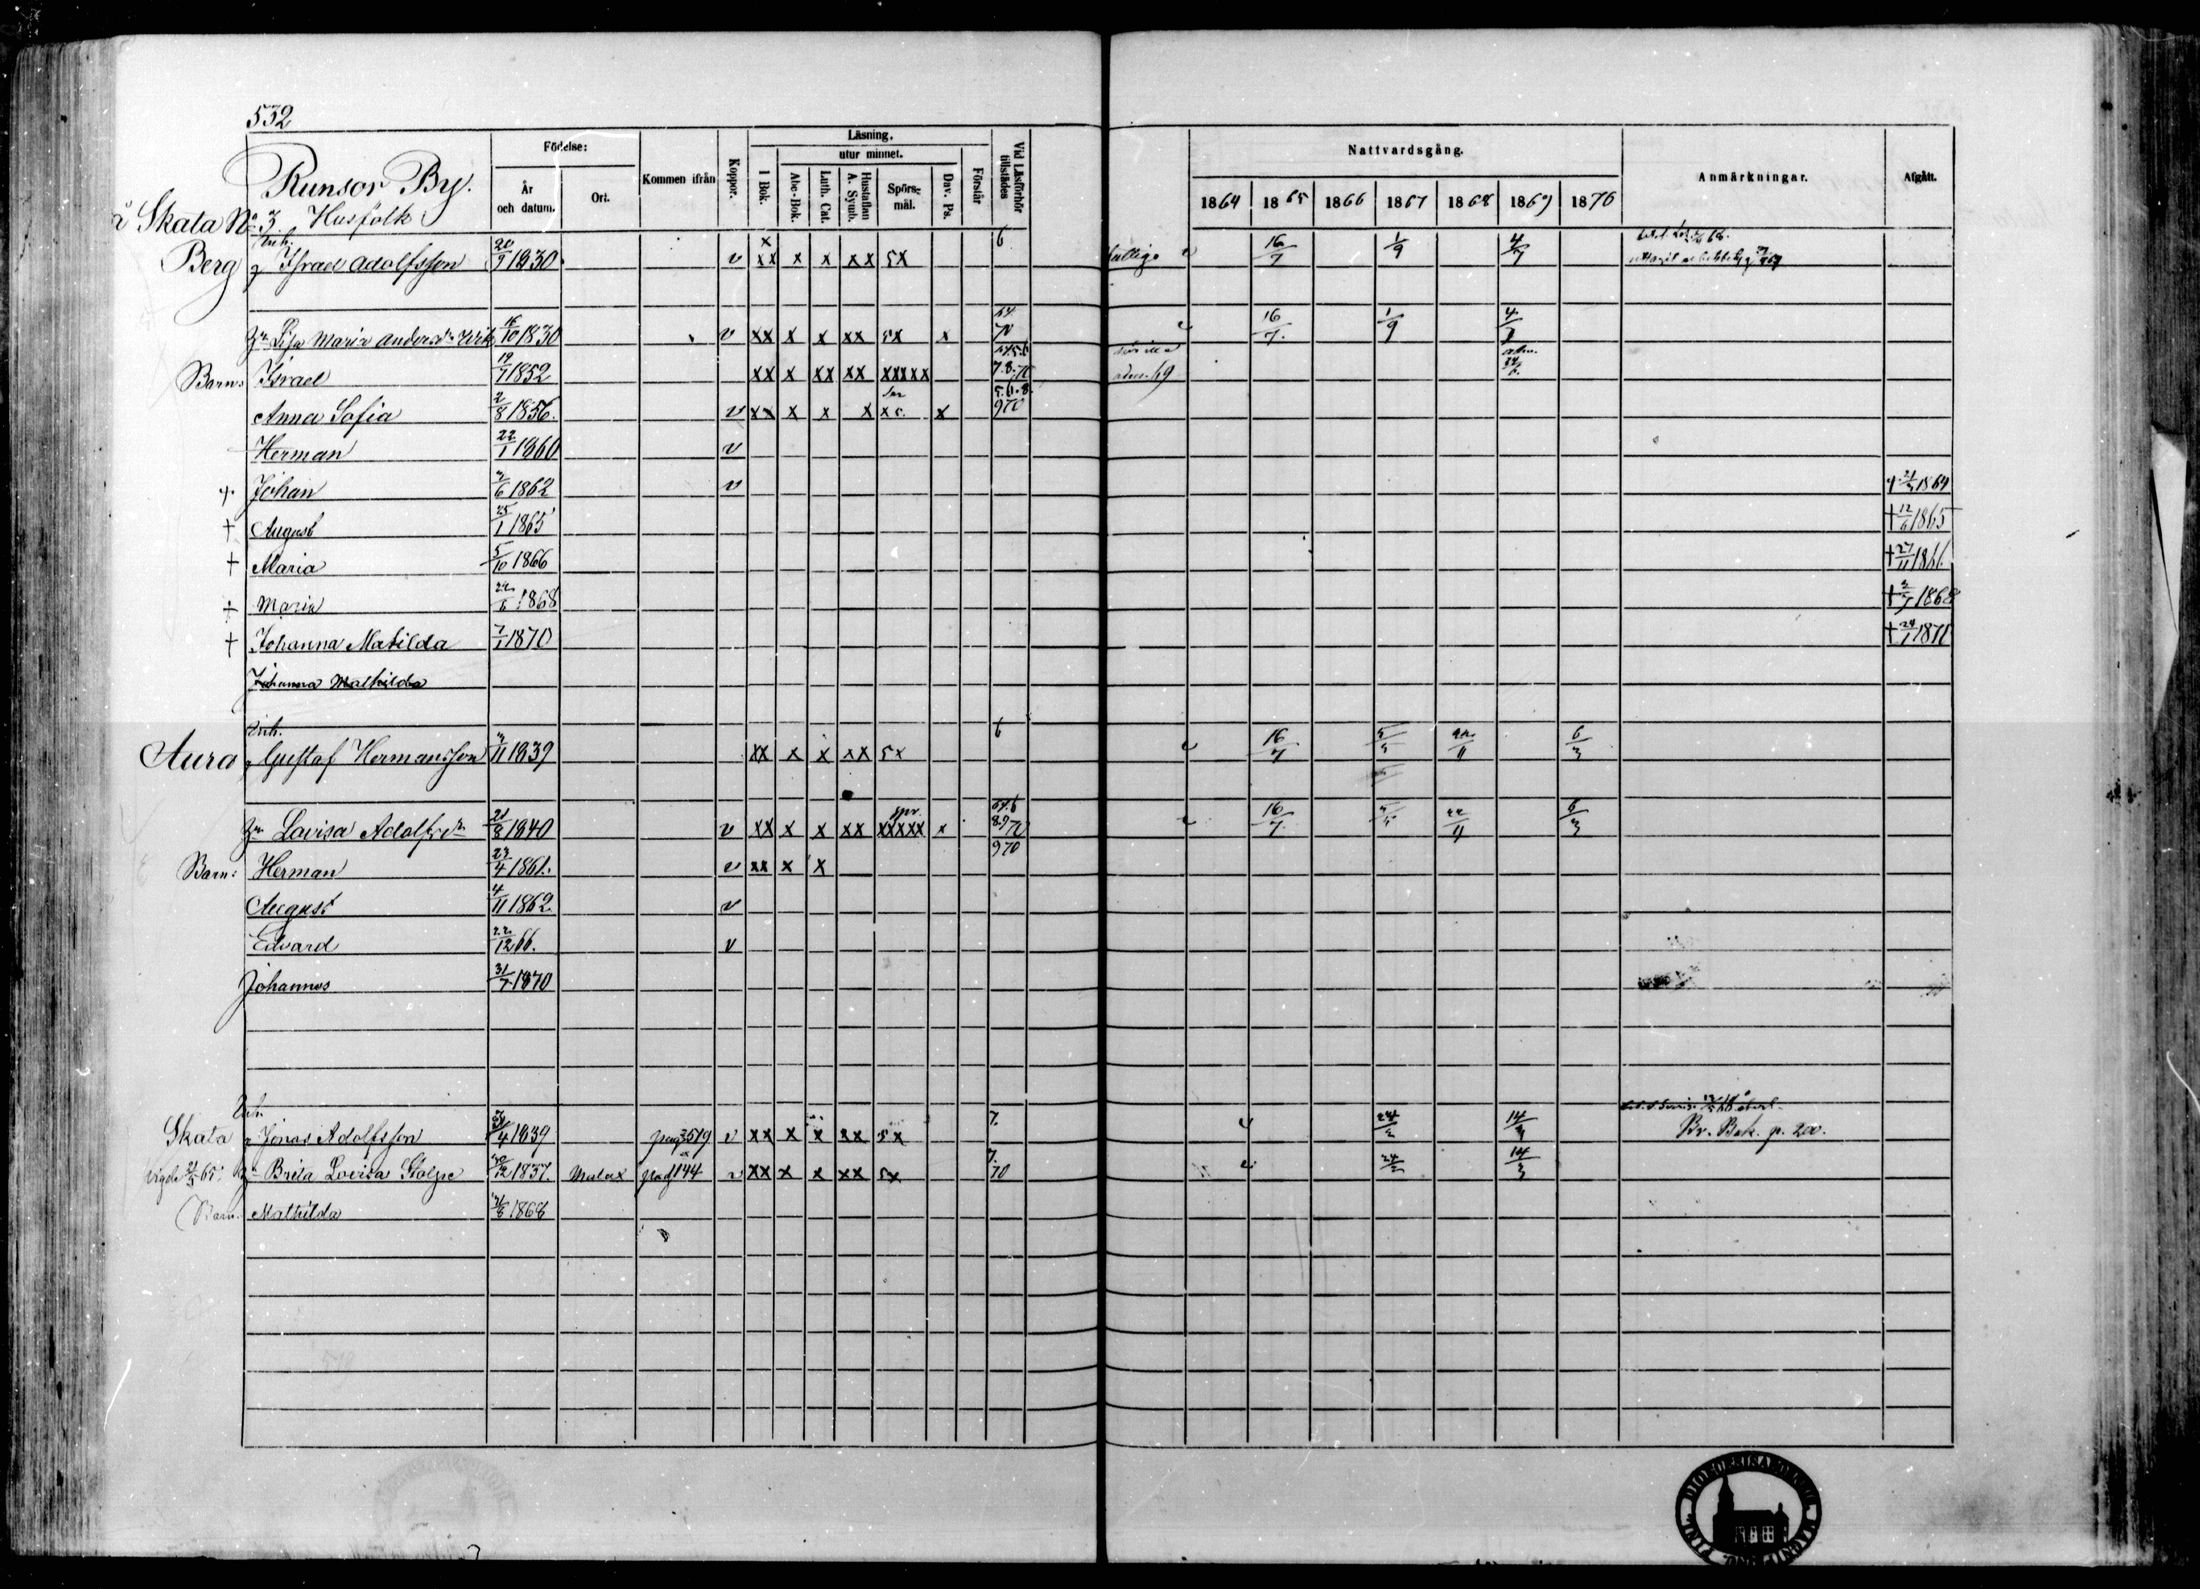 532
Runsor By.
å Skata No 3. Husfolk
Födelse:
År och datum.
Ort.
Kommen ifrån
Koppor.
Läsning.
I Bok.
utur minnet.
Abc-Bok.
Luth. Cat.
Hustaflan A. Symb.
Spörsmål.
Dav. Ps.
Förstår
Vid Läsförhör tillstädes
Nattvardsgång.
1864 1865 1866 1867 1868 1869 1870
Anmärkningar.
Afgått.
Inh. 6
Berg Israel Adolfsson 20/9 1830. v xx x x xx 5x 16/7 1/9 4/7
64
Hu Lisa Maria Andersdr Wik 16/10 1830 v xx x x xx 5x x 70 16/7. 1/9 4/7
Barn: Israel 19/7 1852 xx x xx xx xxxxx 7.8.70 adm. 69
Anna Sofia 2/8 1856. v xx x x x x5. x 970
Herman 22/1 1860 v
Johan 1862 v 1864
† August 25/1 1865 † 12/6 1865
† Maria 5/10 1866 † 27/11 1866.
† Maria 1868 † 1868
† Johanna Matilda 7/1 1870 † 24/1 1870
Johanna Mathilda
Inh. 6
Aura Gustaf Hermansson 3/11 1839 xx x x xx 5x 16/7 5/5 22/11 6/3
Hu Lovisa Adolfsdr 21/8 1840 v xx x x xx xxxxx x 8970 16/7. 5/5 22/11 6/3
Barn: Herman 23/4 1861. v xx x x 970
August 4/11 1862. v
Edvard 22/12 66. v
Johannes 31/7 1870
Inh.
Skata Jonas Adolfsson 1839 pag 519 v xx x x xx 5x 7. 24/2 14/3 Br. Bok. p. 200.
Vigde 65. Hu Brita Lovisa Stolpe 30/12 1837. Malax pag 144 v xx x x xx 5x 7. 70 24/2 14/3
Barn. Mathilda 1868